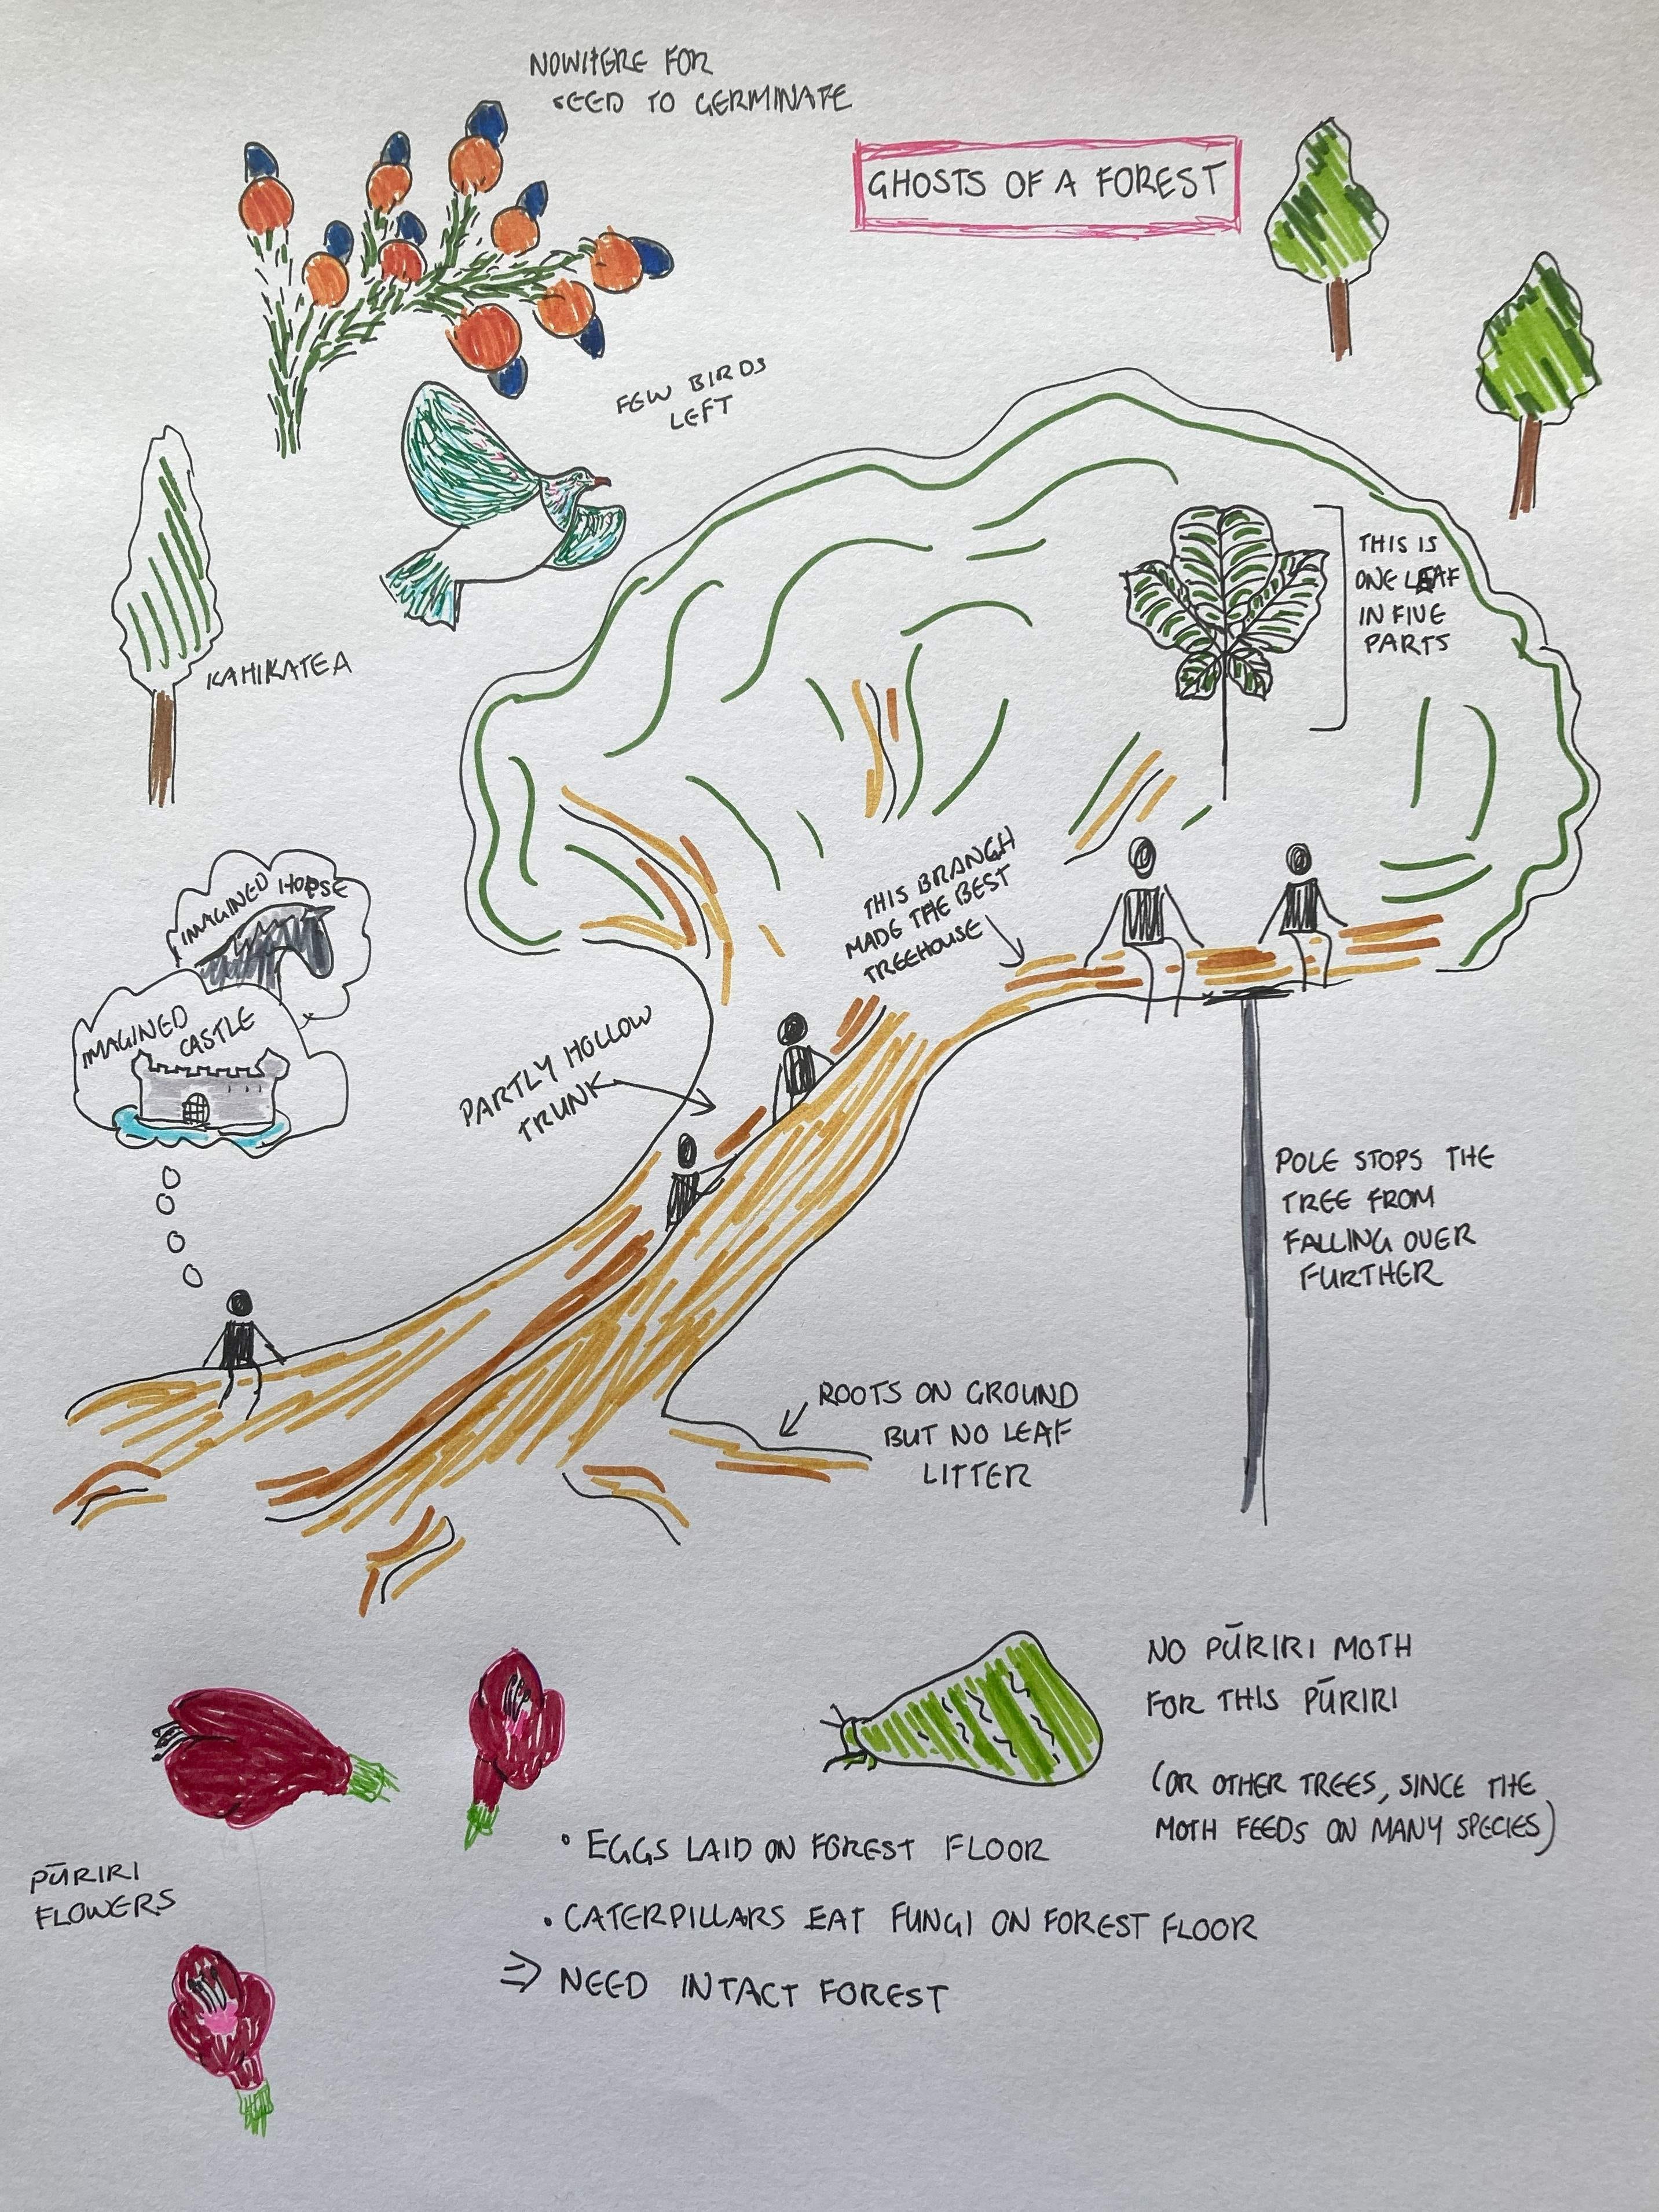 NOWHERE FOR
SEED TO GERMINATE
GHOSTS OF A FOREST
FEW BIRDS
LEFT
THIS IS
ONE LEAF
IN FIVE
PARTS
KAHIKATEA
THIS BRANCH
MADE THE BEST
TREEHOUSE
IMAGINED HORSE
IMAGINED
CASTLE
PARTLY HOLLOW
TRUNK
POLE STOPS THE
TREE FROM
FALLING OVER
FURTHER
ROOTS ON GROUND
BUT NO LEAF
LITTER
NO PŪRIRI MOTH
FOR THIS PŪRIRI
(OR OTHER TREES, SINCE THE
MOTH FEEDS ON MANY SPECIES)
PŪRIRI
FLOWERS
• EGGS LAID ON FOREST FLOOR
• CATERPILLARS EAT FUNGI ON FOREST FLOOR
⇒ NEED INTACT FOREST